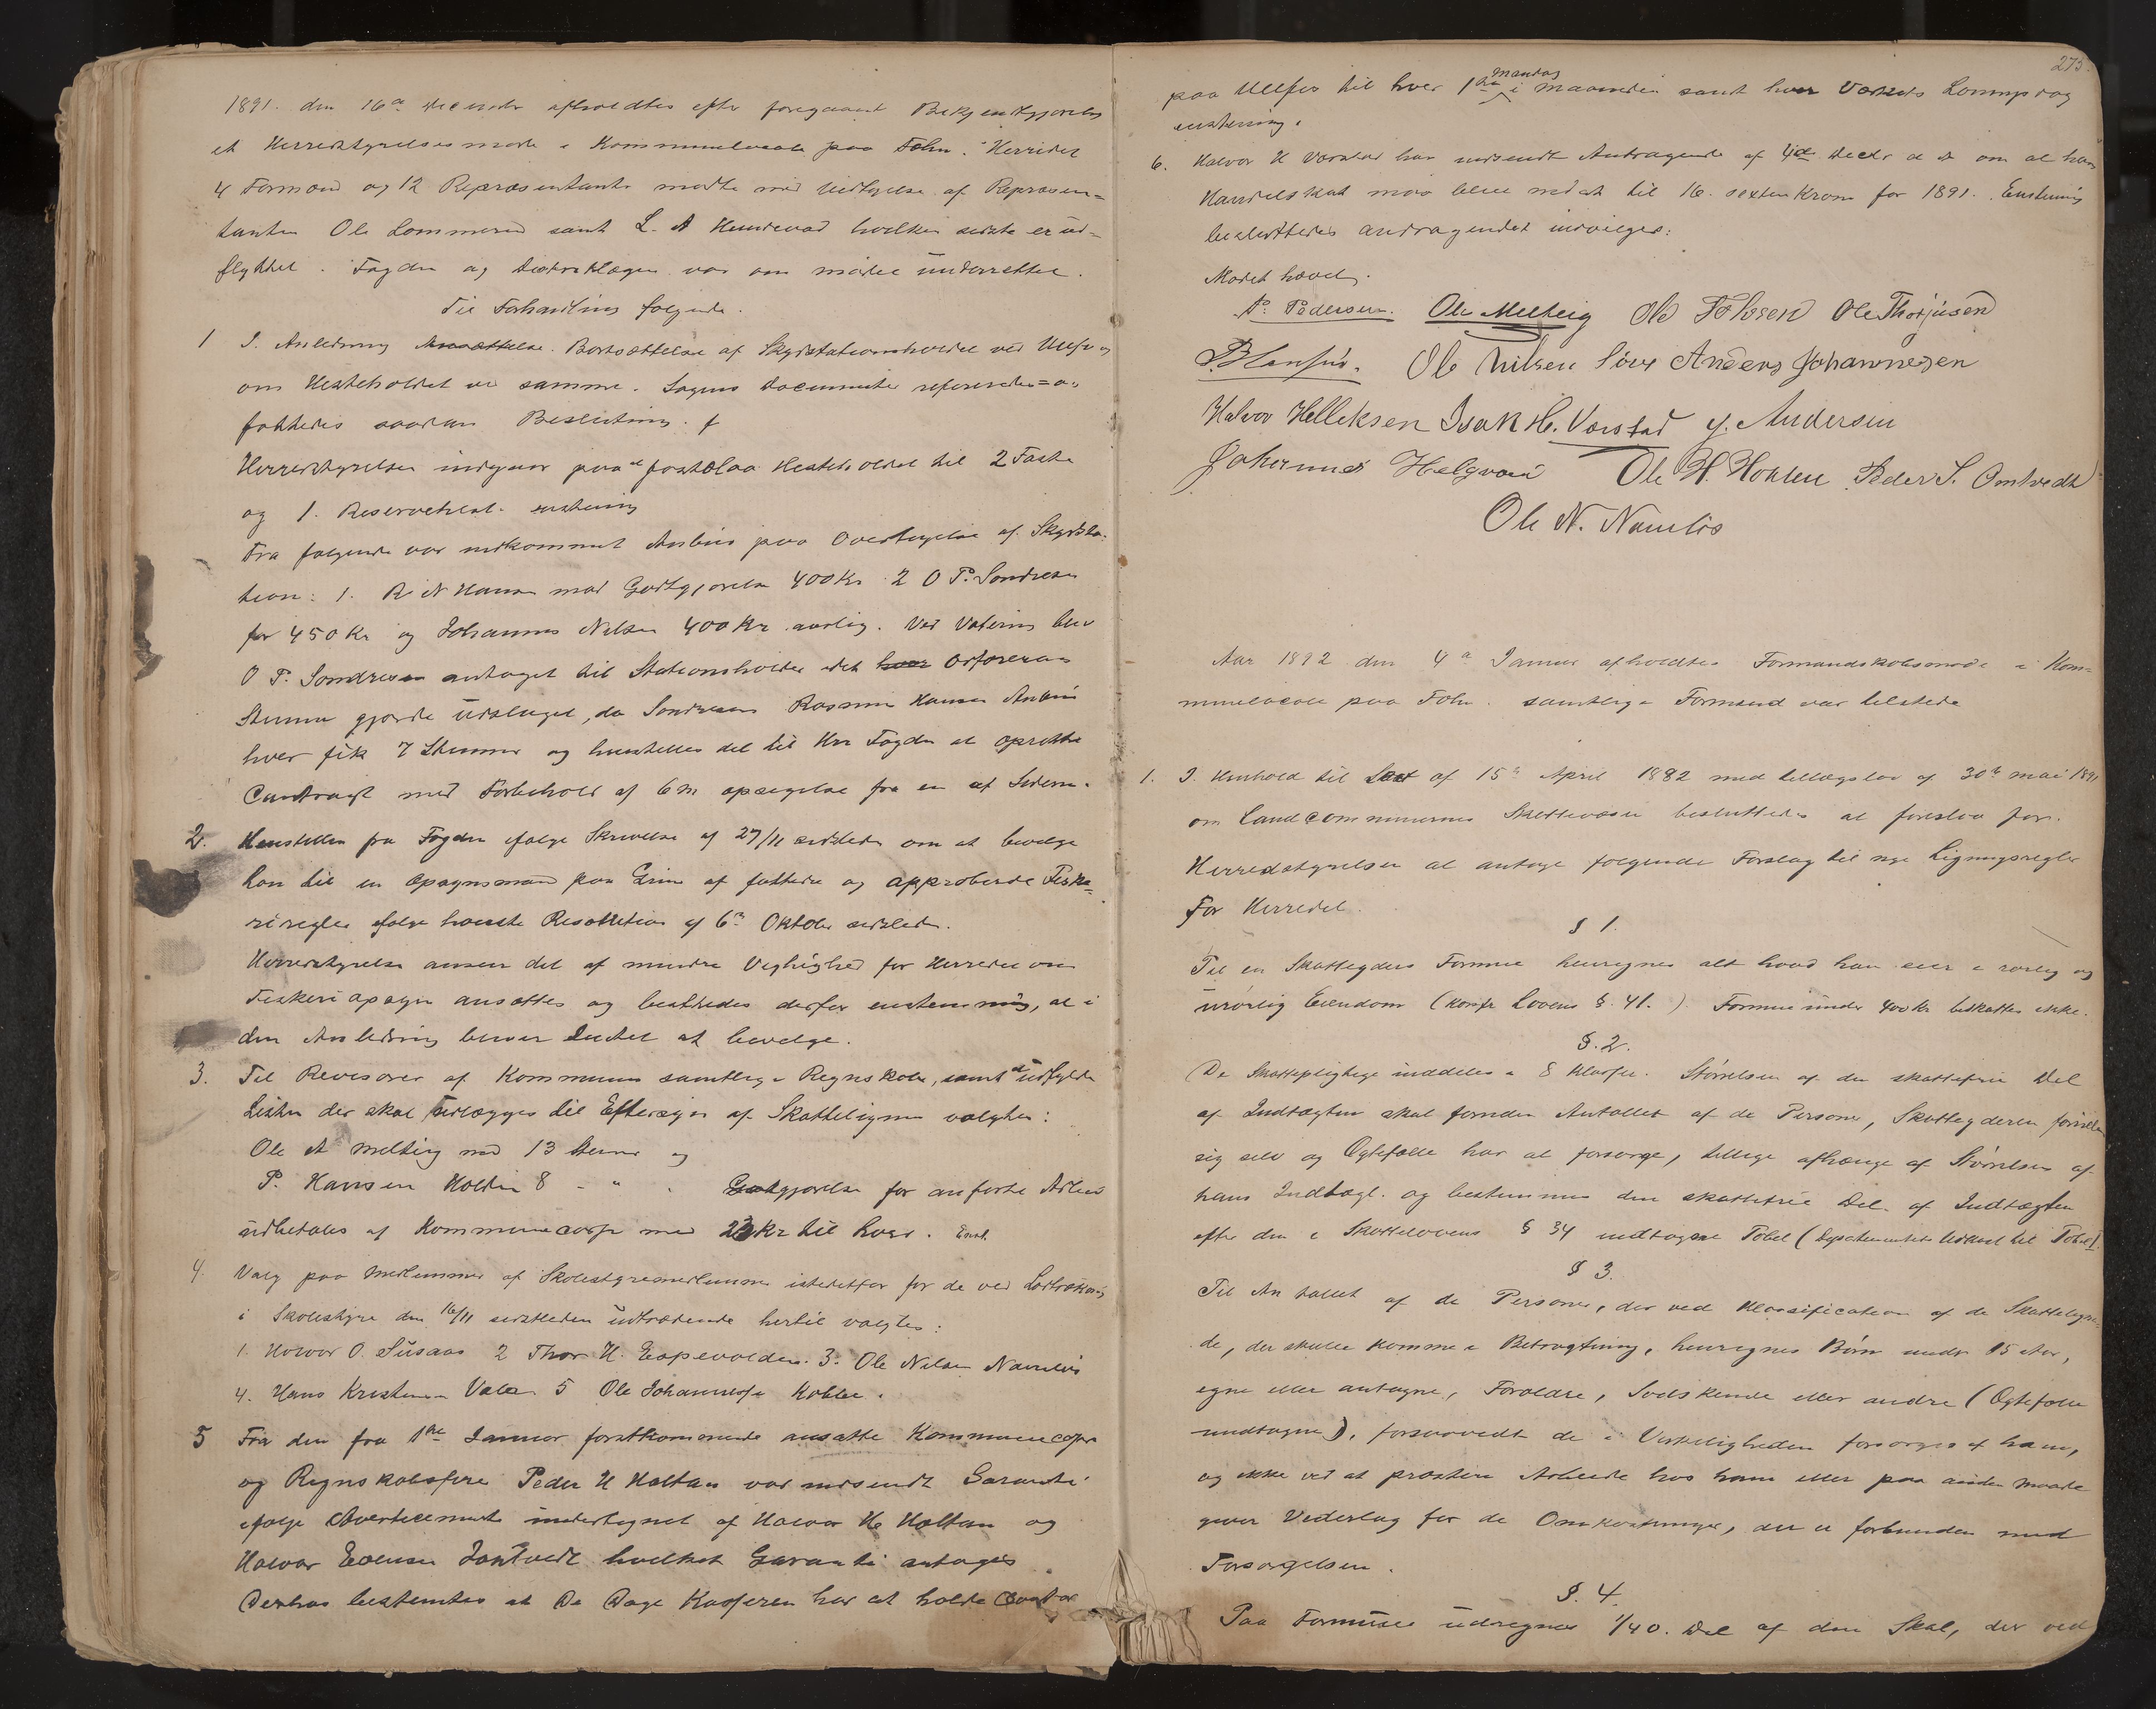 1891. den 16de December afholdtes efter foregaaende Bekjendtgjørelse
et Herredstyrelsesmøde i Kommunelocale paa Fohn. Herredet
4 Formænd og 12 Repræsentanter mødte med Undtagelse af Repræsen=
tanten Ole Lommerud samt L. A Hundevad hvilken sidste er ud=
flyttet. Fogden og Distriktslægen var om mødet underrettet.
Til Forhandling følgende.
1 I. Anledning Ansættelse. Bortsættelse af Skydsstationsholdet ved Ulefos og
om Hesteholdet ved samme. Sagens Documenter refereredes og
fattedes saadan Beslutning.
Herredstyrelsen indgaar paa at fastslaa Hesteholdet til 2 Faste
og 1. Reservehest. enstemmig
Fra følgende var indkommet Anbud paa Overtagelse af Skydssta-
tion: 1. R N Hansen mod Godtgjørelse 400 Kr 2 O P. Sondresen
for 450 Kr og Johannes Nilsen 400 Kr aarlig. Ved Votering blev
O P. Sondresen antaget til Stationsholder idet hver Ordførerens
Stemme gjorde Udslaget, da Sondresens Rasmus Hansens Anbud
hver fik 7 Stemmer og henstilles det til Hrr Fogden at oprette
Contragt med Forbehold af 6 M opsigelse fra en af Siderne.
2. Henstillen fra Fogden ifølge Skrivelse af 27/11 sidstleden om at bevilge
Løn til en Opsynsmand paa Grund af fattede og approberede Fiske=
riregler ifølge høieste Resolution af 6te Oktober sidstleden.
Herredstyrelsen anser det af mindre Vigtighed for Herredet om
Fiskeriopsyn ansættes og besluttedes derfor enstemmig, at i
den Anledning bliver Intet at bevilge.
3. Til Revisorer af Kommunens samtlige Regnskaber, samt at udfylde
Listen der skal udlægges til Eftersyn af Skatteligningen valgtes:
Ole A Melteig med 13 Stemmer og
P. Hansen Holden 8 - " - Godtgjørelse for anførte Arbeid
udbetales af Kommunecassen med 23 Kr til hver. Enst.
4. Valg paa Medlemmer af Skolestyremedlemmer istedetfor for de ved Lodtrækning
i Skolestyre den 16/11 sidstleden udtrædende hertil valgtes:
1. Halvor O. Susaas 2 Thor H. Eapevolden. 3. Ole Nilsen Namløs
4. Hans Kristensen Vala 5 Ole Johannessen Kobbe.
5 Fra den fra 1ste Januar førstkommende ansatte Kommunecasserer
og Regnskabsfører Peder H Holtan var indsendt Garanti
ifølge Avertecement undertegnet af Halvor H Holtan og
Halvor Evensen Jontvedt hvilket Garanti antages
Derhos bestemtes at De Dage Kassereren har at holde Contor
273.
paa Ulefos til hver 1ste Mandag i Maaneden samt hver Værkets Lønningsdag
enstemmig.
6. Halvor H Vorstad har indsendt Andragende af 4de Decbr d A om at hans
Handelsskat maa blive nedsat til 16. sexten Kroner for 1891. Enstemmig
besluttedes andragendet indvilges.
Mødet hævet.
P. Pedersen. Ole Melteig Ole Johnsen Ole Thorjusen
P. Hansen. Ole Nilsen Sove Anders Johannesen
Halvor Helleksen Isak H. Vorstad J. Andersen
Johannes Helgvar Ole H. Holden Peder S. Omtvedt
Ole N. Namløs
Aar 1892 den 4de Januar afholdtes Formandskabsmøde i Kom=
munelocale paa Fohn. samtlige Formænd var tilstede
1. I. Henhold til Lov af 15de April 1882 med tillægslov af 30te Mai 1891
om Landcommunernes Skattevæsen besluttedes at foreslaa for.
Herredstyrelsen at antage følgende Forslag til nye Ligningsregler
for Herredet.
§ 1.
Til en Skatteyders Formue henregnes alt hvad han eier i rørlig og
urørlig Eiendom (Konfr Lovens §. 41.) Formue under 400 Kr beskattes ikke.
§. 2.
De Skattepligtige inddeles i 8 Klasser. Størrelsen af den skattefrie Del
af Indtægten skal foruden Antallet af de Personer, Skatteyderen foruden
sig selv og Egtefælle har at forsørge, tillige afhænge af Størrelsen af
hans Indtægt. og bestemmes den skattefrie Del af Indtægten
efter den i Skattelovens § 34 indtagne Tabel (Departementets Udkast til Tabel).
§ 3.
Til Antallet af de Personer, der ved Klassification af de Skatteyden=
de, der skulle komme i Betragtning, henregnes Børn under 15 Aar,
egne eller antagne, Forældre, Sødskende eller andre (Egtefælle
undtagen), forsaavidt de i Virkeligheden forsørges af ham,
og ikke ved at præstere Arbeide hos ham eller paa anden Maade
giver Vederlag for de Omkostninger, der er forbunden med
Forsørgelsen.
§. 4.
Paa Formuen udregnes 1/40. Del af den Skat, der ved